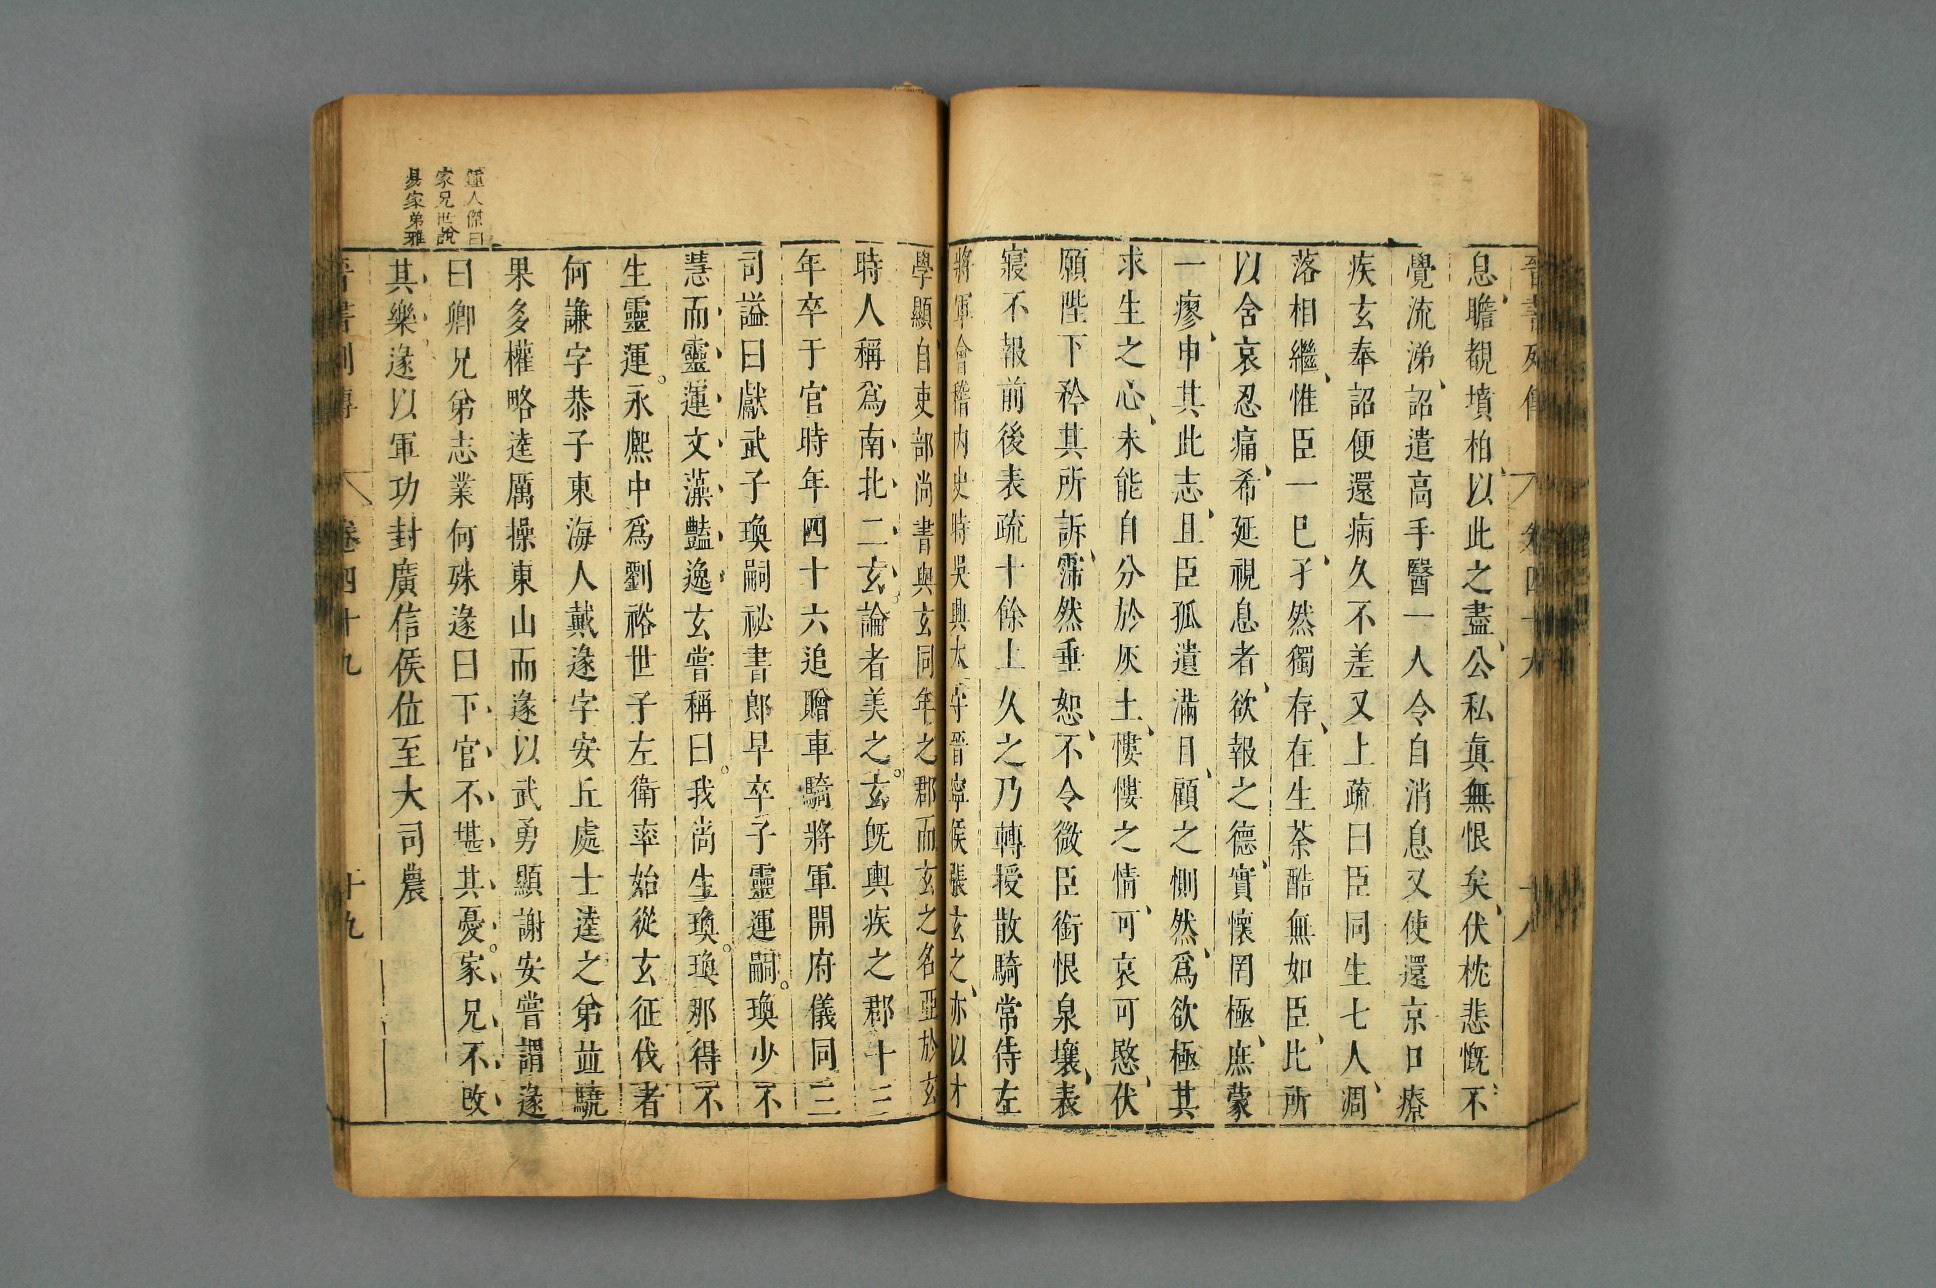 息瞻覩墳柏以此之盡公私眞無恨矣伏枕悲慨不
覺流涕詔遣高手醫一人令自消息又使還京口療
疾玄奉詔便還病久不差又上疏曰臣同生七人凋
落相繼惟臣一巳孑然獨存在生荼酷無如臣比所
以含哀忍痛希延視息者欲報之德實懷罔極庶蒙
一瘳申其此志且臣孤遺滿目顧之惻然爲欲極其
求生之心未能自分於灰土慺慺之情可哀可愍伏
願陛下矜其所訴霈然垂恕不令微臣銜恨泉壤表
寢不報前後表疏十餘上久之乃轉授散騎常侍左
將軍會稽內史時吳興太守晉寧侯張玄之亦以才
學顯自吏部尚書與玄同年之郡而玄之名亞於玄
時人稱爲南北二玄論者美之玄旣輿疾之郡十三
年卒于官時年四十六追贈車騎將軍開府儀同三
司謚曰獻武子瑍嗣祕書郎早卒子靈運嗣瑍少不
慧而靈運文藻豔逸玄嘗稱曰我尚生瑍瑍那得不
生靈運永熙中爲劉裕世子左衛率始從玄征伐者
何謙字恭子東海人戴遂字安丘處士逵之弟並驍
果多權略逵厲操東山而遂以武勇顯謝安嘗謂遂
曰卿兄弟志業何殊遂曰下官不堪其憂家兄不改
其樂遂以軍功封廣信侯位至大司農
鍾人傑曰
家兄世說
易家弟雅
晉書列傳 卷四十九 十九